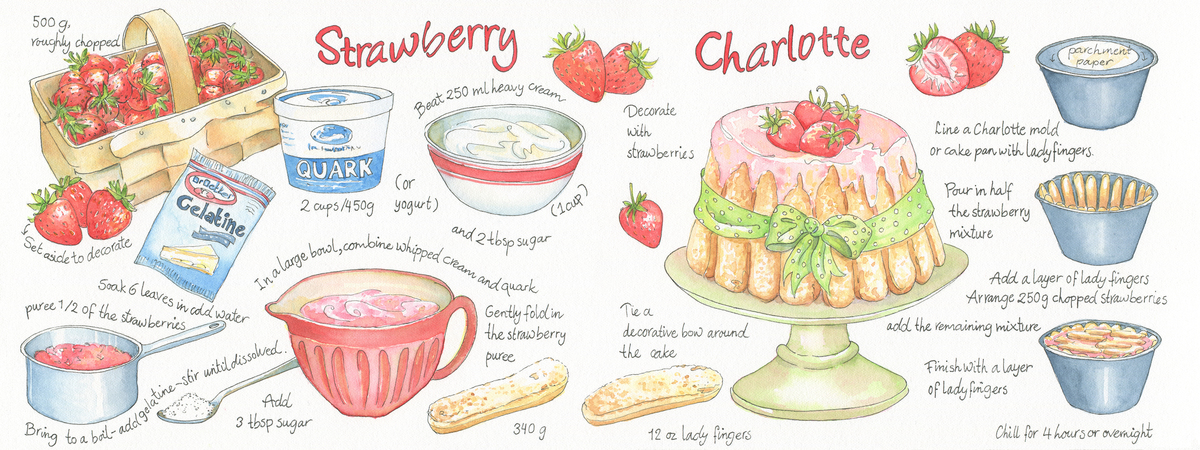 Strawberry
Charlotte
500 g,
roughly chopped
Set aside to decorate
Dr Oetker
Gelatine
Soak 6 leaves in cold water
QUARK
2 cups/450g
(or
yogurt)
Beat 250 ml heavy cream
(1 cup)
and 2 tbsp sugar
puree 1/2 of the strawberries
Bring to a boil - add gelatine - stir until dissolved.
Add
3 tbsp sugar
In a large bowl, combine whipped cream and quark
Gently fold in
the strawberry
puree
340 g
12 oz lady fingers
Decorate
with
strawberries
Tie a
decorative bow around
the cake
parchment
paper
Line a Charlotte mold
or cake pan with ladyfingers.
Pour in half
the strawberry
mixture
Add a layer of lady fingers
Arrange 250g chopped strawberries
add the remaining mixture
Finish with a layer
of ladyfingers
Chill for 4 hours or overnight